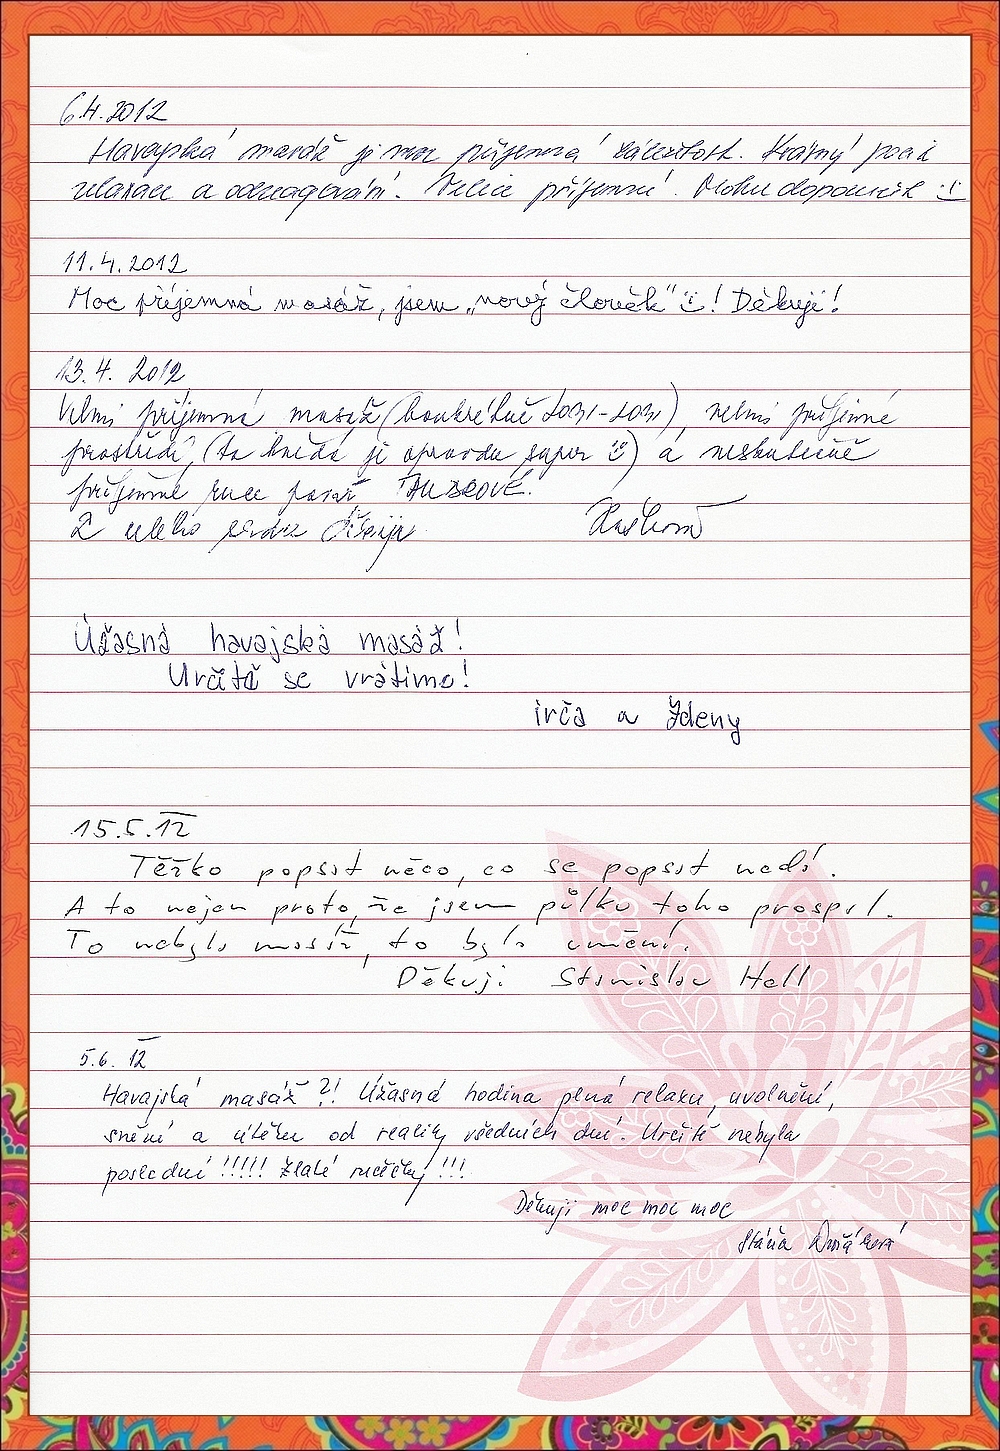 6.4.2012
Havajská masáž je moc příjemná záležitost. Krásný pocit
relaxace a odreagování. Velice příjemné. Mohu doporučit :-)
11.4.2012
Moc příjemná masáž, jsem „nový člověk" :-)! Děkuji!
13.4. 2012
Velmi příjemná masáž (konkrétně LOMI-LOMI), velmi příjemné
prostředí, (ta hudba je opravdu super :-)) a neskutečně
příjemné ruce paní
Z celého srdce děkuji
Úžasná havajská masáž!
Určitě se vrátíme!
irča a Zdeny
15.5.12
Těžko popsat něco, co se popsat nedá.
A to nejen proto, že jsem půlku toho prospal.
To nebyla masáž, to bylo umění.
Děkuji Stanislav Hall
5.6. 12
Havajská masáž?! Úžasná hodina plná relaxu, uvolnění,
snění a útěku od reality všedních dní. Určitě nebyla
poslední!!!!! Zlaté ručičky!!!
Děkuji moc moc moc
Stáňa